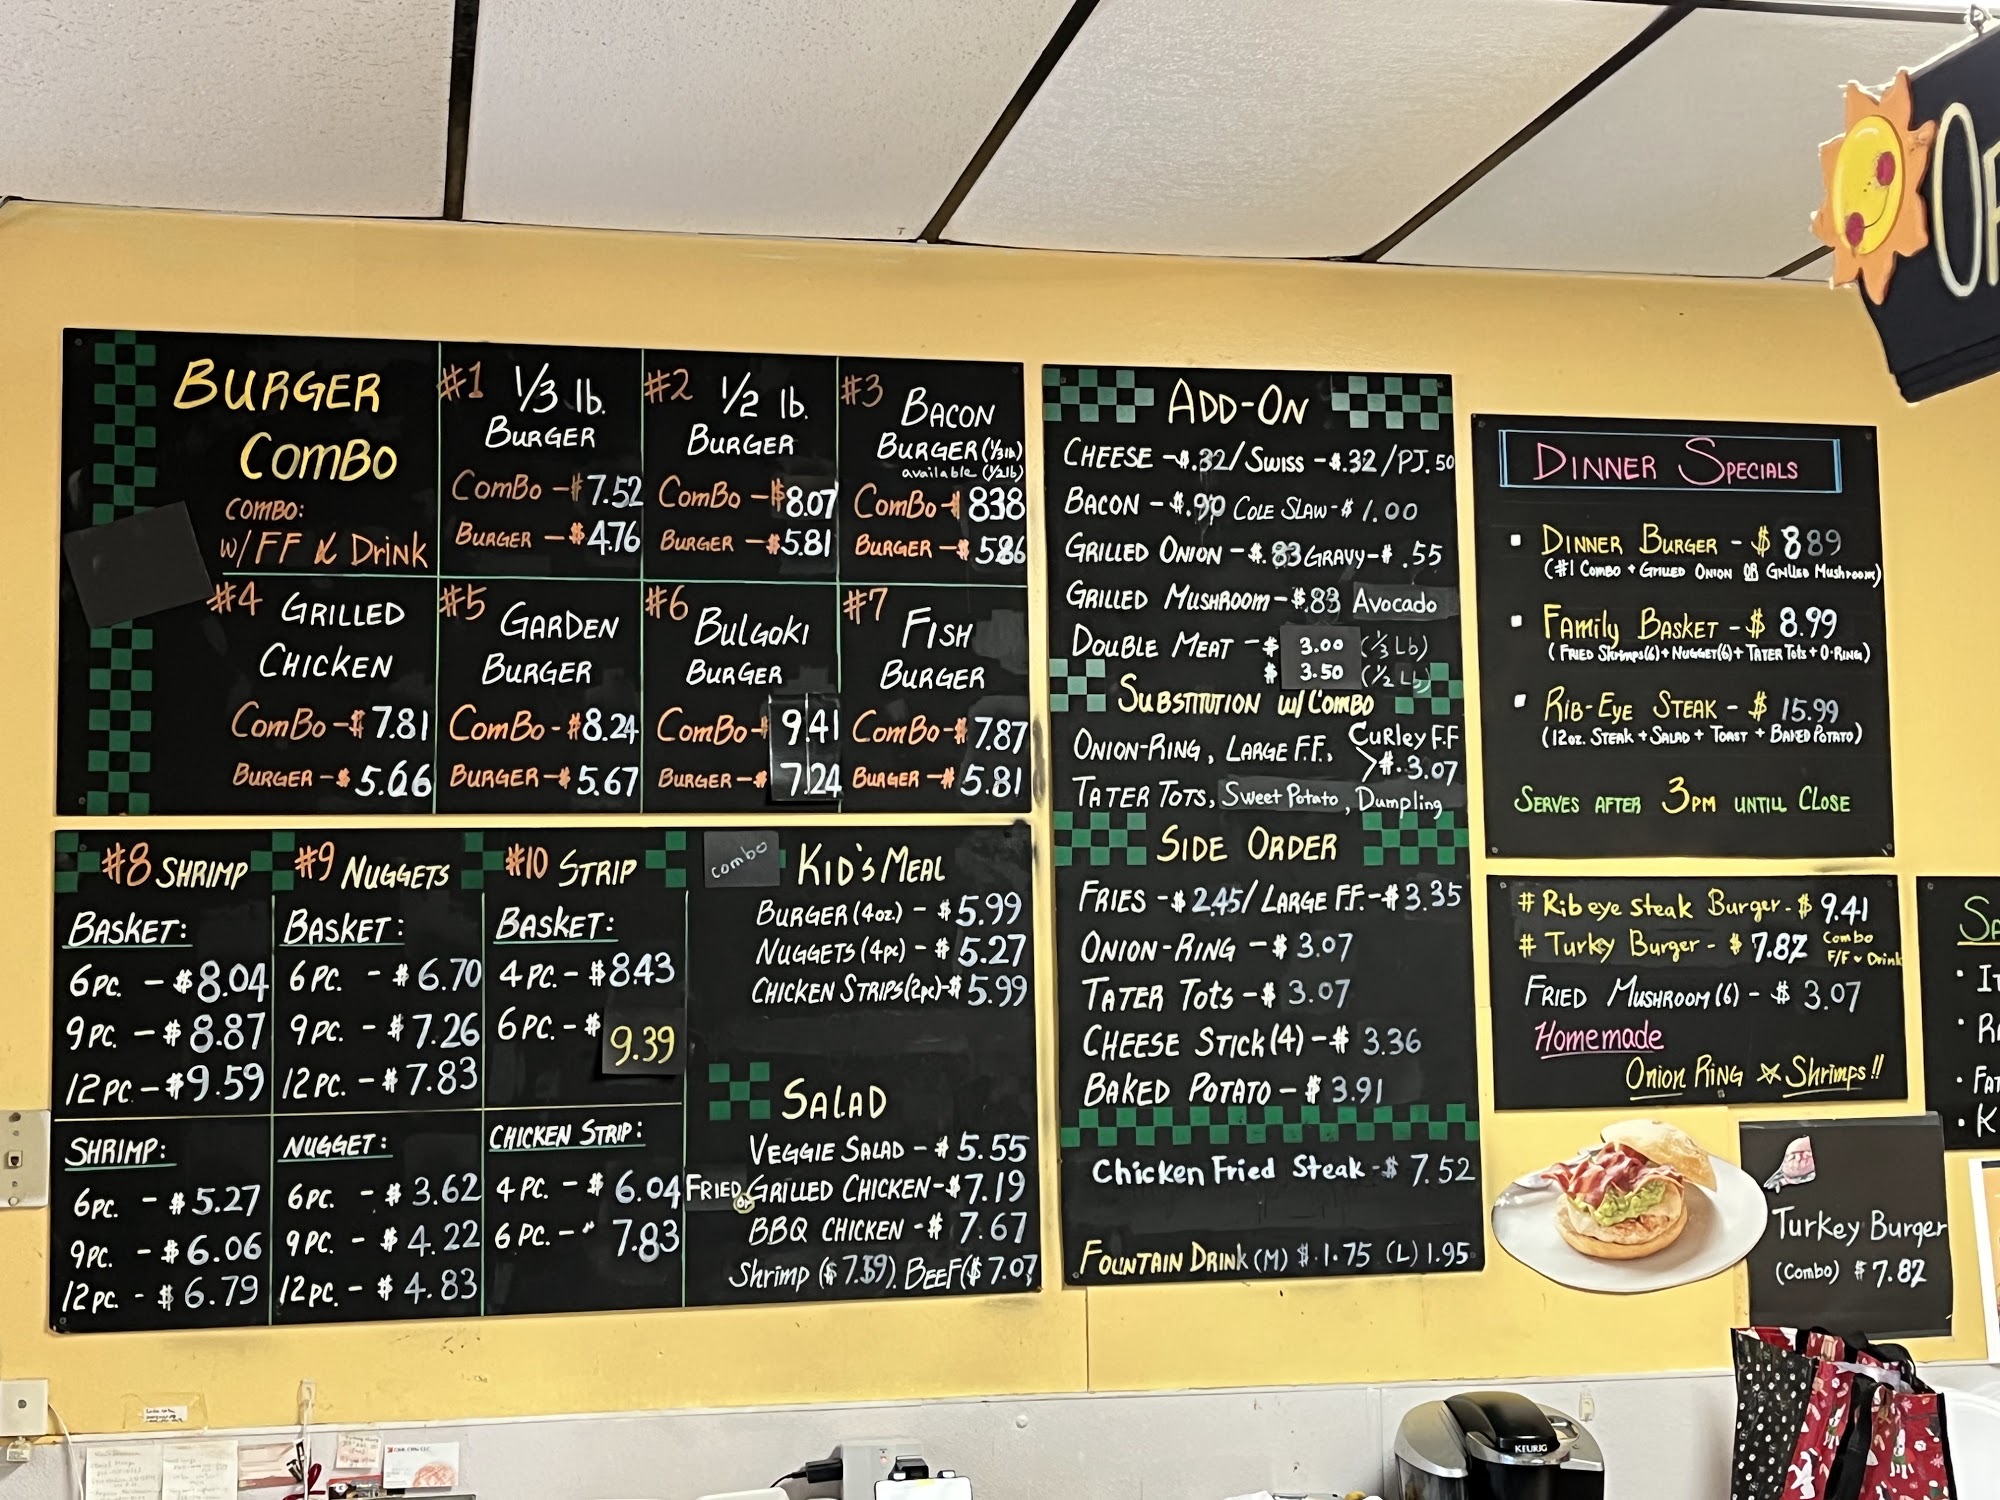 BURGER
COMBO
COMBO:
w/ FF & Drink
#1 1/3 lb.
BURGER
COMBO - $7.52
BURGER - $4.76
#2 1/2 lb.
BURGER
COMBO - $8.07
BURGER - $5.81
#3 BACON
BURGER (1/3 lb)
available (1/2 lb)
COMBO - $ 8.38
BURGER - $ 5.86
#4 GRILLED
CHICKEN
COMBO - $ 7.81
BURGER - $ 5.66
#5 GARDEN
BURGER
COMBO - $8.24
BURGER - $ 5.67
#6 BULGOKI
BURGER
COMBO - $ 9.41
BURGER - $ 7.24
#7 FISH
BURGER
COMBO - $ 7.87
BURGER - $ 5.81
#8 SHRIMP
BASKET:
6PC. - $8.04
9PC. - $ 8.87
12PC - $9.59
SHRIMP:
6PC. - $5.27
9PC. - $6.06
12PC. - $ 6.79
#9 NUGGETS
BASKET:
6PC. - $ 6.70
9PC. - $ 7.26
12PC. - $7.83
NUGGET:
6PC. - $ 3.62
9PC. - $ 4.22
12PC. - $ 4.83
#10 STRIP
BASKET:
4PC. - $8.43
6PC. - $ 9.39
CHICKEN STRIP:
4PC. - $ 6.04
6PC. - " 7.83
combo
KID'S MEAL
BURGER (4oz.) - $ 5.99
NUGGETS (4pc) - $ 5.27
CHICKEN STRIPS (2pc) - $ 5.99
SALAD
VEGGIE SALAD - $ 5.55
FRIED or GRILLED CHICKEN - $7.19
BBQ CHICKEN - $ 7.67
Shrimp ($ 7.39), BEEF ($ 7.07
ADD-ON
CHEESE - $.32/ SWISS - $.32 /PJ.50
BACON - $.90 COLE SLAW - $ 1.00
GRILLED ONION - $.83 GRAVY - $ .55
GRILLED MUSHROOM - $.83 Avocado
DOUBLE MEAT - $ 3.00 (1/3 Lb)
$ 3.50 (1/2 Lb)
SUBSTITUTION w/ COMBO
ONION-RING, LARGE F.F., CURLEY F.F
> $. 3.07
TATER TOTS, Sweet Potato, Dumpling
SIDE ORDER
FRIES - $ 2.45/ LARGE FF. - $ 3.35
ONION-RING - $ 3.07
TATER TOTS - $ 3.07
CHEESE STICK (4) - $ 3.36
BAKED POTATO - $ 3.91
Chicken Fried Steak - $ 7.52
FOUNTAIN DRINK (M) $ 1.75 (L) 1.95
DINNER SPECIALS
DINNER BURGER - $ 8.89
(#1 COMBO + GRILLED ONION OR GRILLED MUSHROOM)
FAMILY BASKET - $ 8.99
(FRIED SHRIMPS(6) + NUGGET(6) + TATER TOTS + O-RING)
RIB-EYE STEAK - $ 15.99
(12oz. STEAK + SALAD + TOAST + BAKED POTATO)
SERVES AFTER 3PM UNTIL CLOSE
# Ribeye steak Burger - $ 9.41
# Turkey Burger - $ 7.87 Combo
F/F & Drink
FRIED MUSHROOM (6) - $ 3.07
Homemade
ONION RING & Shrimps!!
Turkey Burger
(Combo) $ 7.87
KEURIG